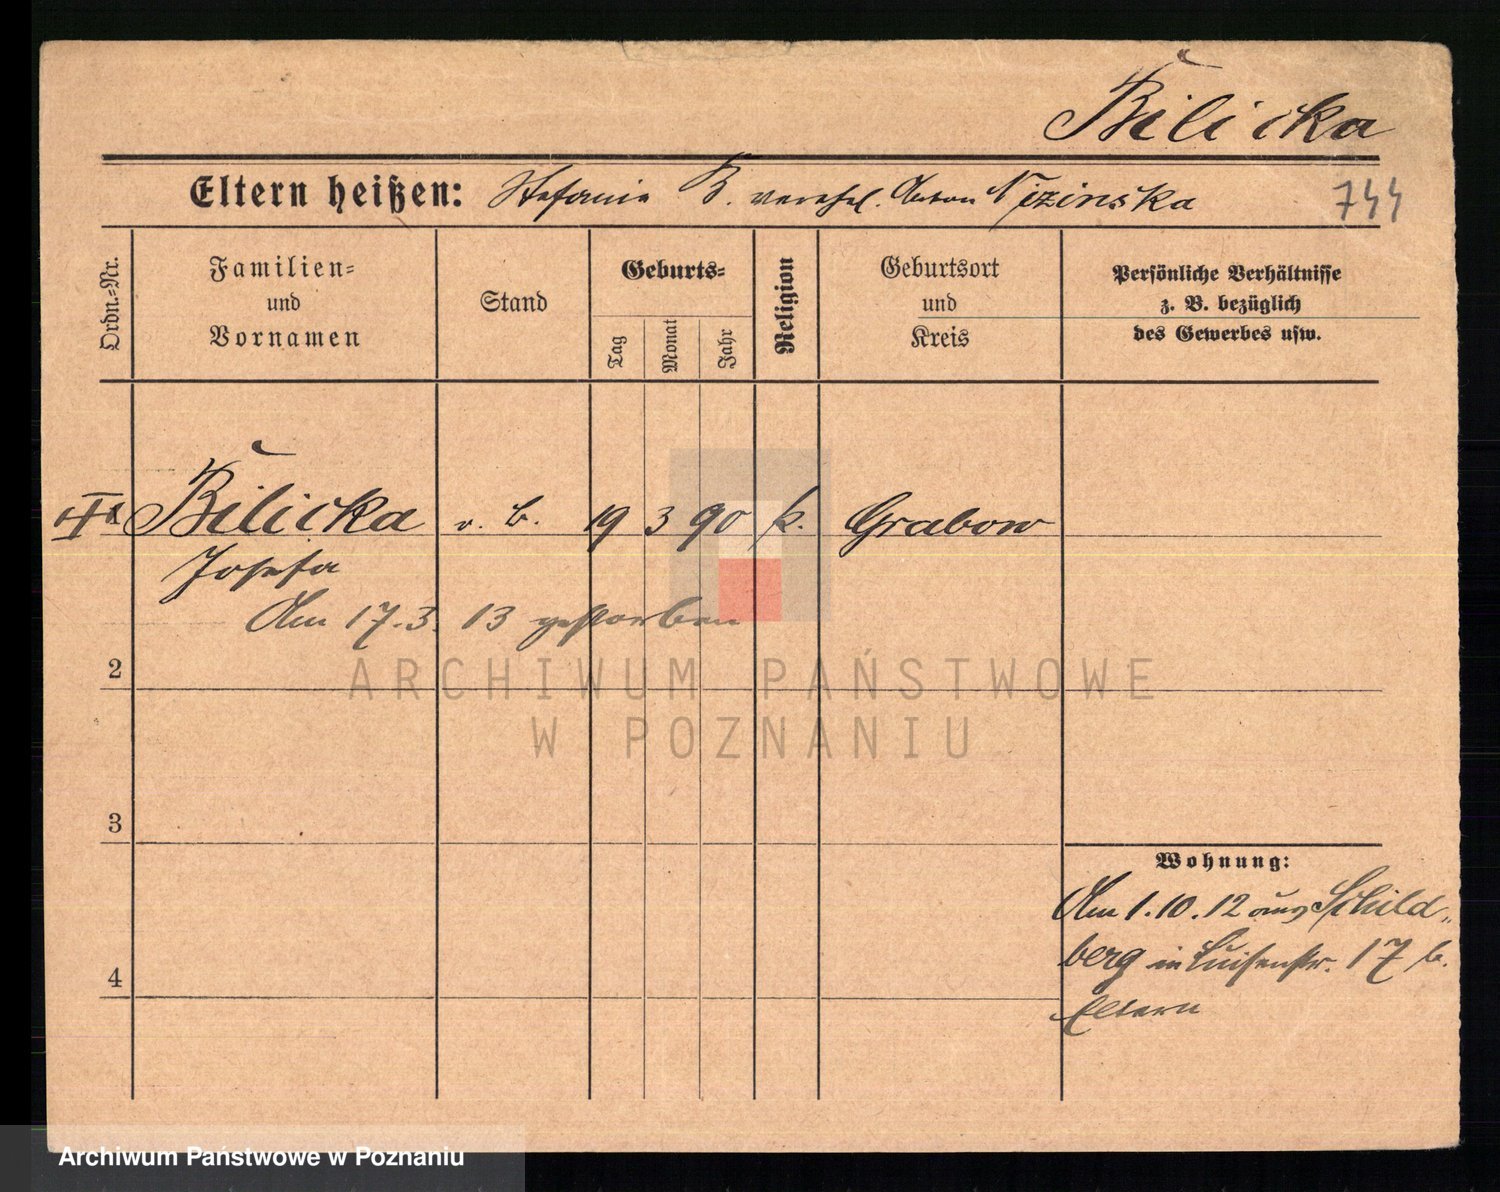 Bilicka
Eltern heißen: Stefanie B. verehel. Anton Nizinska
744
Ordn.-Nr.
Familien-
und
Vornamen
Stand
Geburts-
Tag
Monat
Jahr
Religion
Geburtsort
und
Kreis
Persönliche Verhältnisse
z. B. bezüglich
des Gewerbes usw.
Bilicka o. b. 19 3 90 k. Grabow
Josefa
Am 17.3.13 gestorben
2
3
4
Wohnung:
Am 1.10.12 aus Schild-
berg in Luisenstr. 17 b.
Eltern
ARCHIWUM PAŃSTWOWE
W POZNANIU
Archiwum Państwowe w Poznaniu